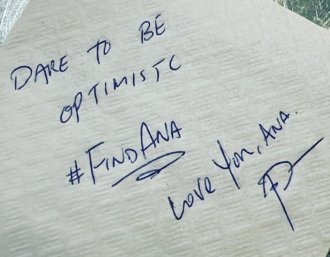 DARE TO BE
OPTIMISTC
#FINDANA
Love You, ANA.